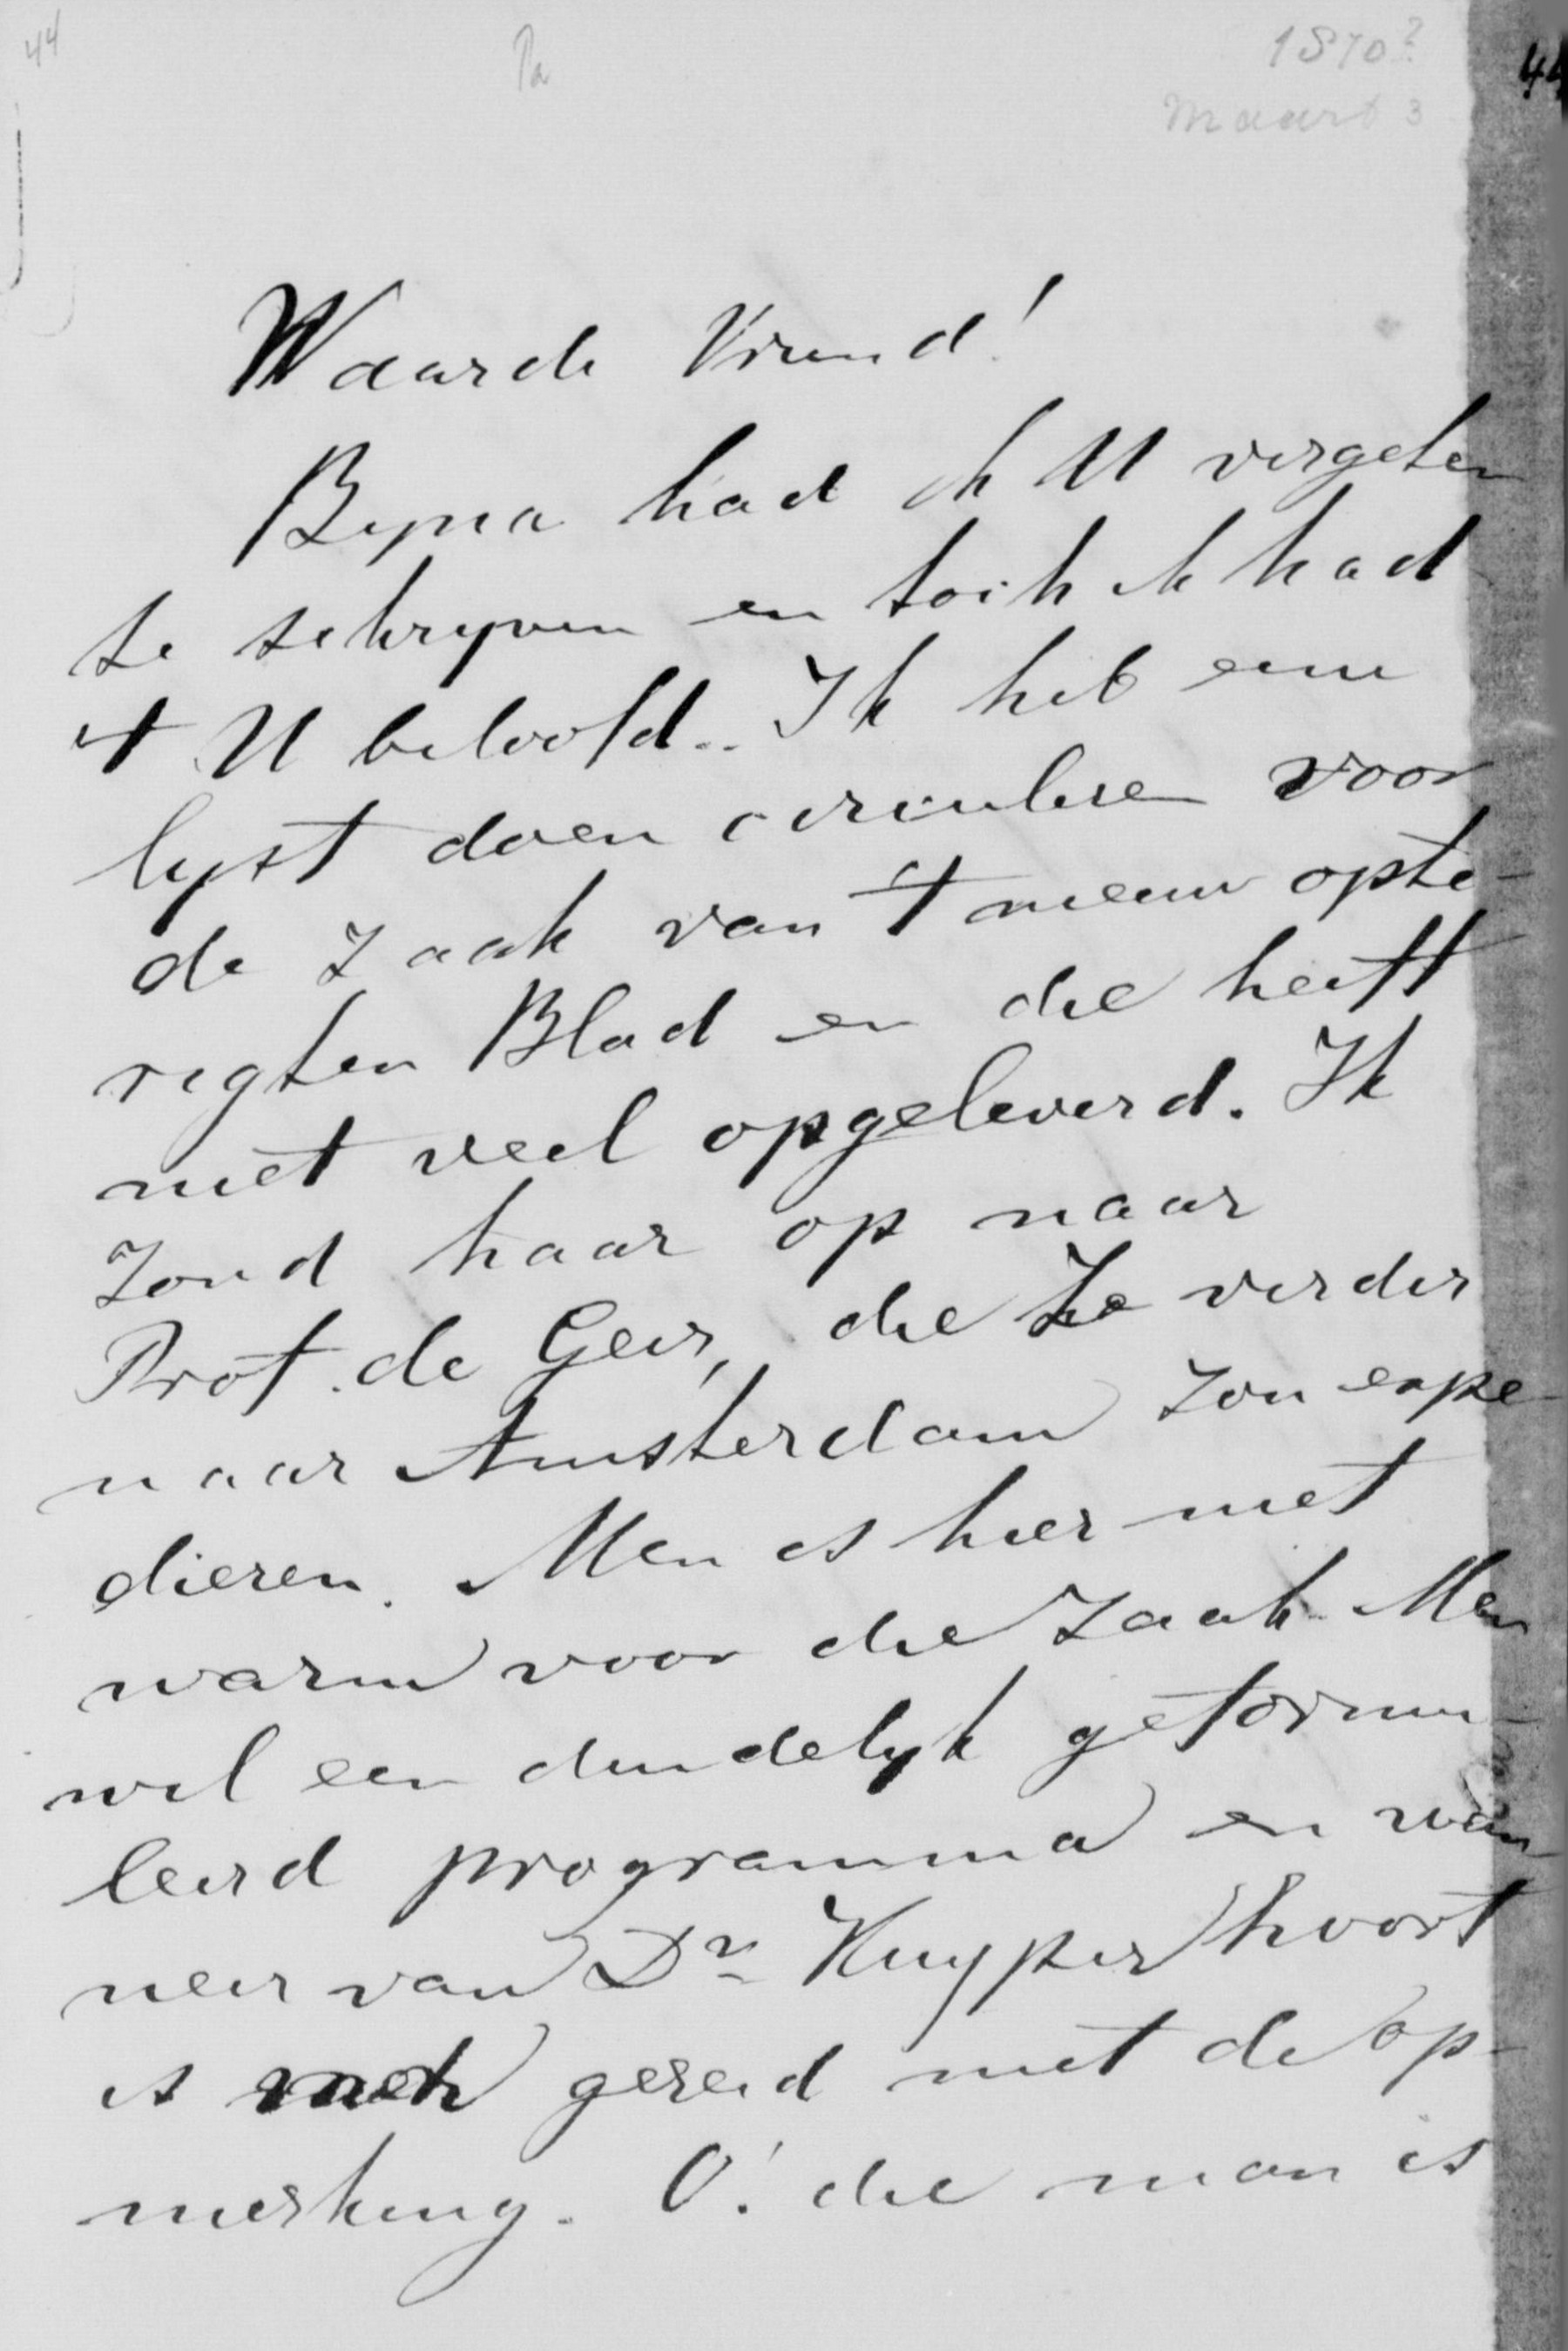 44 Pa 1870?
Maart 3
44
Waarde Vriend!
Byna had ik U vergeten
te schryven en toch ik had
't U beloofd.. Ik heb eene
lyst doen circuleren voor
de zaak van 't nieuw opte-
rigten Blad en die heeft
niet veel opgeleverd. Ik
zond haar op naar
Prof. de Geer, die ze verder
naar Amsterdam zou expe
dieren. Men is hier niet
warm voor die zaak. Men
wil een duidelyk geformu-
leerd programma en wan
neer van Dr Kuyper hoort
is men gereed met de op-
merking. O! die man is